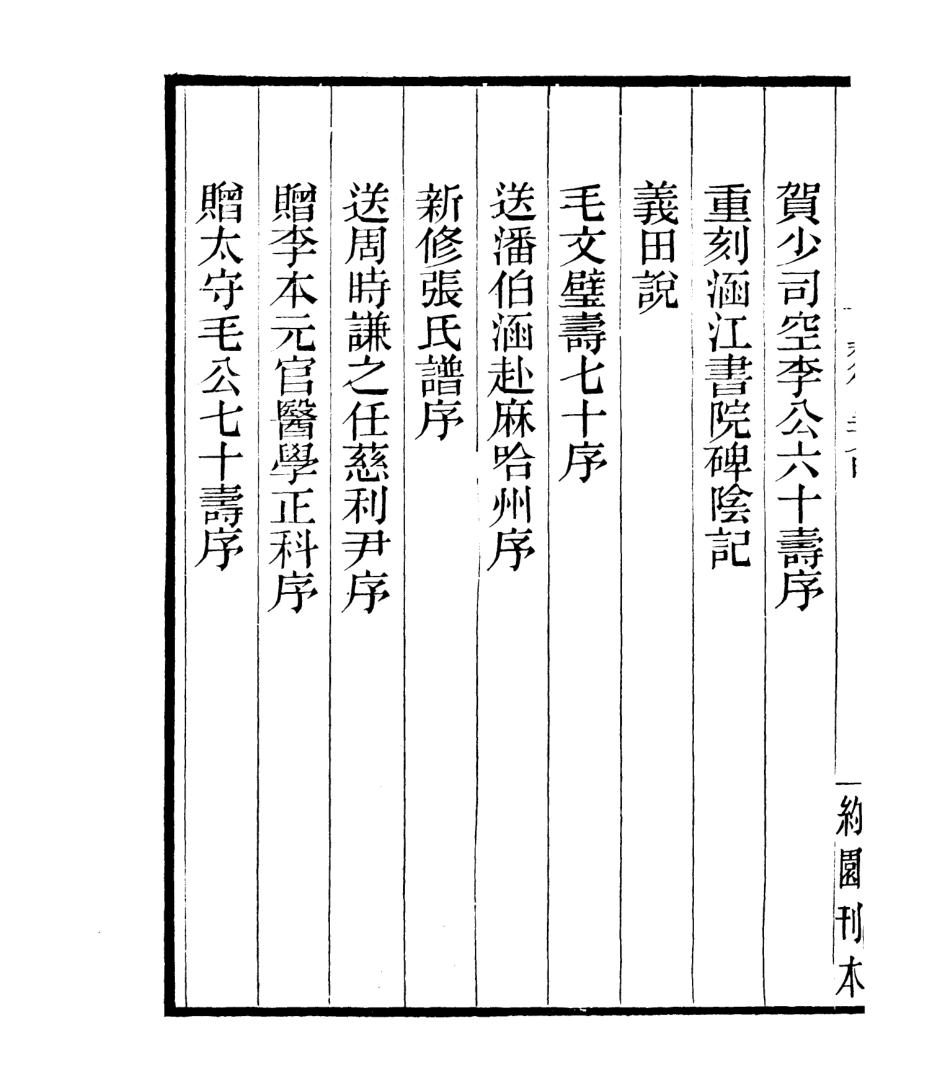 賀少司空李公六十壽序
重刻涵江書院碑陰記
義田說
毛文璧壽七十序
送潘伯涵赴麻哈州序
新修張氏譜序
送周時謙之任慈利尹序
贈李本元官醫學正科序
贈太守毛公七十壽序
約園刊本